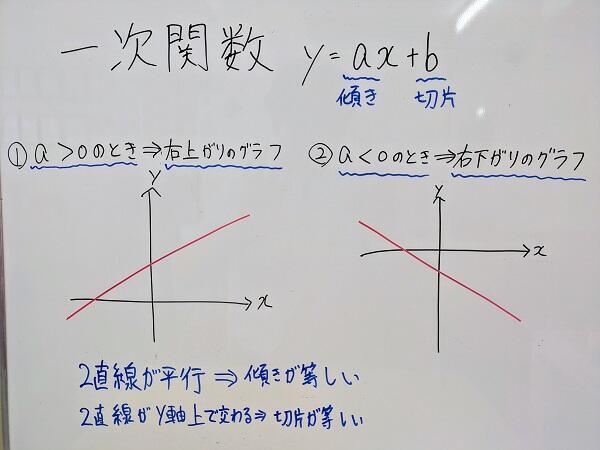 一次関数 y=ax+b
傾き 切片
①a>0のとき⇒右上がりのグラフ
②a<0のとき⇒右下がりのグラフ
y
x
y
x
2直線が平行⇒傾きが等しい
2直線がy軸上で交わる⇒切片が等しい